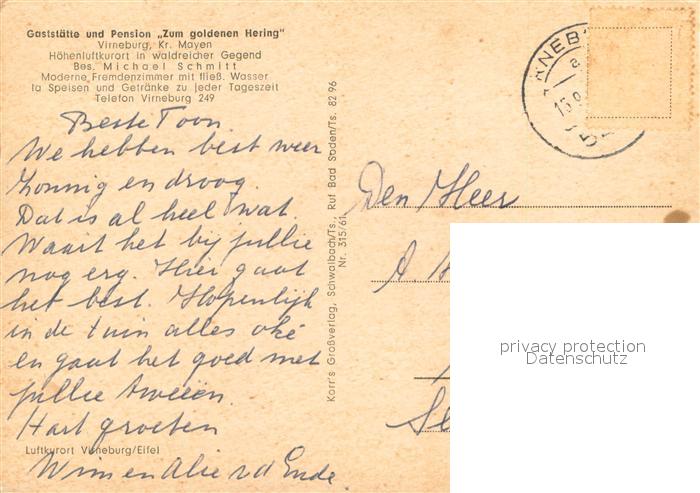 Gaststätte und Pension „Zum goldenen Hering"
Virneburg, Kr. Mayen
Höhenluftkurort in waldreicher Gegend
Bes. Michael Schmitt
Moderne Fremdenzimmer mit fließ. Wasser
Ia Speisen und Getränke zu jeder Tageszeit
Telefon Virneburg 249
Beste Toon.
We hebben best weer
Zonnig en droog.
Dat is al heel wat.
Waait het bij jullie
nog erg. Hier gaat
het best. Hopenlijk
in de tuin alles oké
en gaat het goed met
jullie tweeën.
Hart groeten
Luftkurort Virneburg/Eifel
Wim en Alie v d Ende.
Korr's Großverlag, Schwalbach/Ts., Ruf Bad Soden/Ts. 82 96
Nr. 315/61
Den Heer
A.
privacy protection
Datenschutz